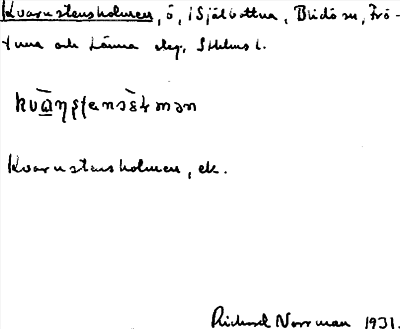 Kvarnstensholmen, ö, i Själbottna, Blidö sn, Frö-
tuna och Länna skg, Sthlms l.
Kvarnstensholmen, ek.
Richard Norrman 1931.